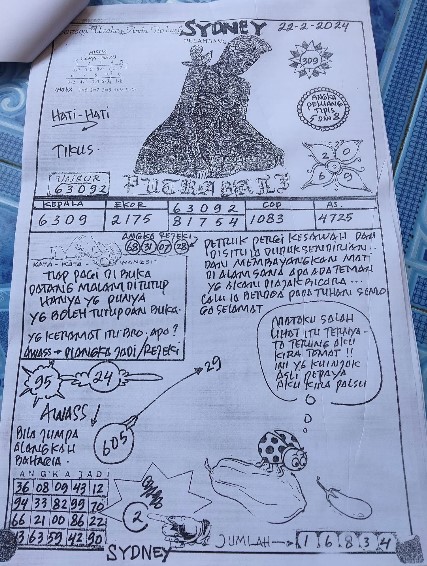 SYDNEY
22-2-2024
309
HATI-HATI
TIKUS.
ANGKA
PELUANG
TIPIS
SDN8
2 0
6 9
63092
PUTRA BALI
KEPALA EKOR 63092 COP AS.
6309 2175 81754 1083 4725
ANGKA REJEKI
68 31 07 28
TIAP PAGI DI BUKA
DATANG MALAM DITUTUP
HANYA YG PUNYA
YG BOLEH TUTUP DAN BUKA.
YG KERAMAT ITU BRO. APA?
AWASS → PLANGKA JADI/REJEKI
PETRUK PERGI KESAWAH DAN
DISITU IA DUDUK SENDIRIAN...
DAN MEMBAYANGKAN MATI
DI ALAM SANA APA ADA TEMAN
YG AKAN DIAJAK BICARA...
LALU IA BERDOA PADA TUHAN SEMO
GA SELAMAT
95
24
29
AWASS!
605
BILA JUMPA
ALANGKAH
BAHAGIA.
MATAKU SALAH
LIHAT ITU TERNYA-
TA TERUNG AKU
KIRA TOMAT!!
INI YG KUINJAK
ASLI PEPAYA
AKU KIRA PALSU
ANGKA JADI
36 08 09 43 12
94 33 82 99 70
66 21 00 86 22
13 63 59 42 90
2
SYDNEY
JUMLAH → 1 6 8 3 4